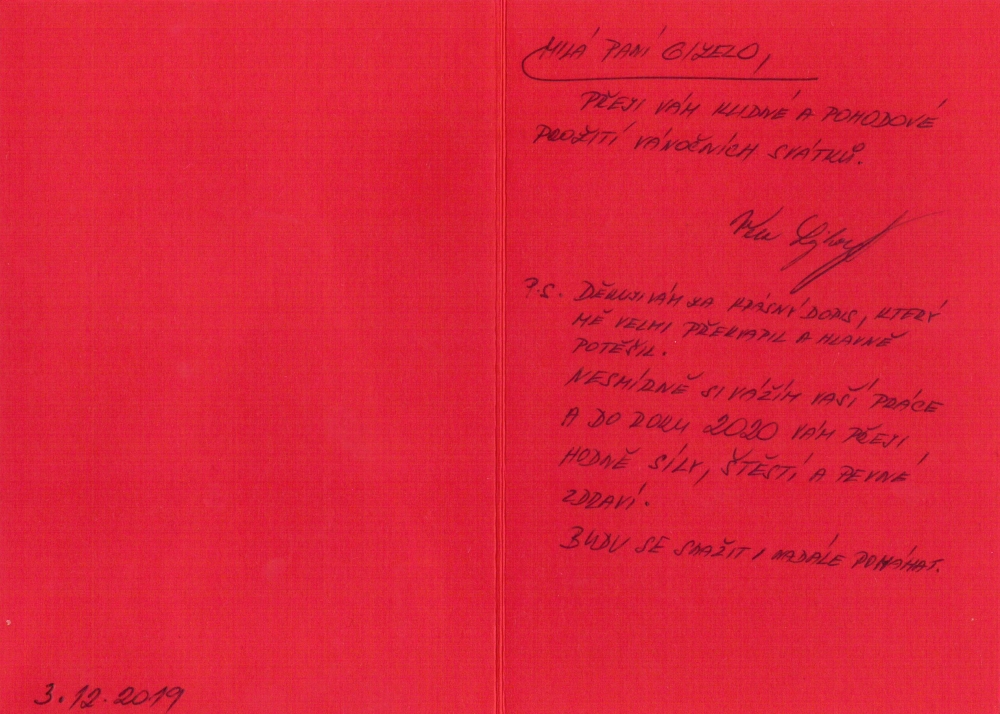 MILÁ PANÍ GIZELO,
PŘEJI VÁM KLIDNÉ A POHODOVÉ
PROŽITÍ VÁNOČNÍCH SVÁTKŮ.
P.S. DĚKUJI VÁM ZA KRÁSNÝ DOPIS, KTERÝ
MĚ VELMI PŘEKVAPIL A HLAVNĚ
POTĚŠIL.
NESMÍRNĚ SI VÁŽÍM VAŠÍ PRÁCE
A DO ROKU 2020 VÁM PŘEJI
HODNĚ SÍLY, ŠTĚSTÍ A PEVNÉ
ZDRAVÍ.
BUDU SE SNAŽIT I NADÁLE POMÁHAT.
3.12.2019